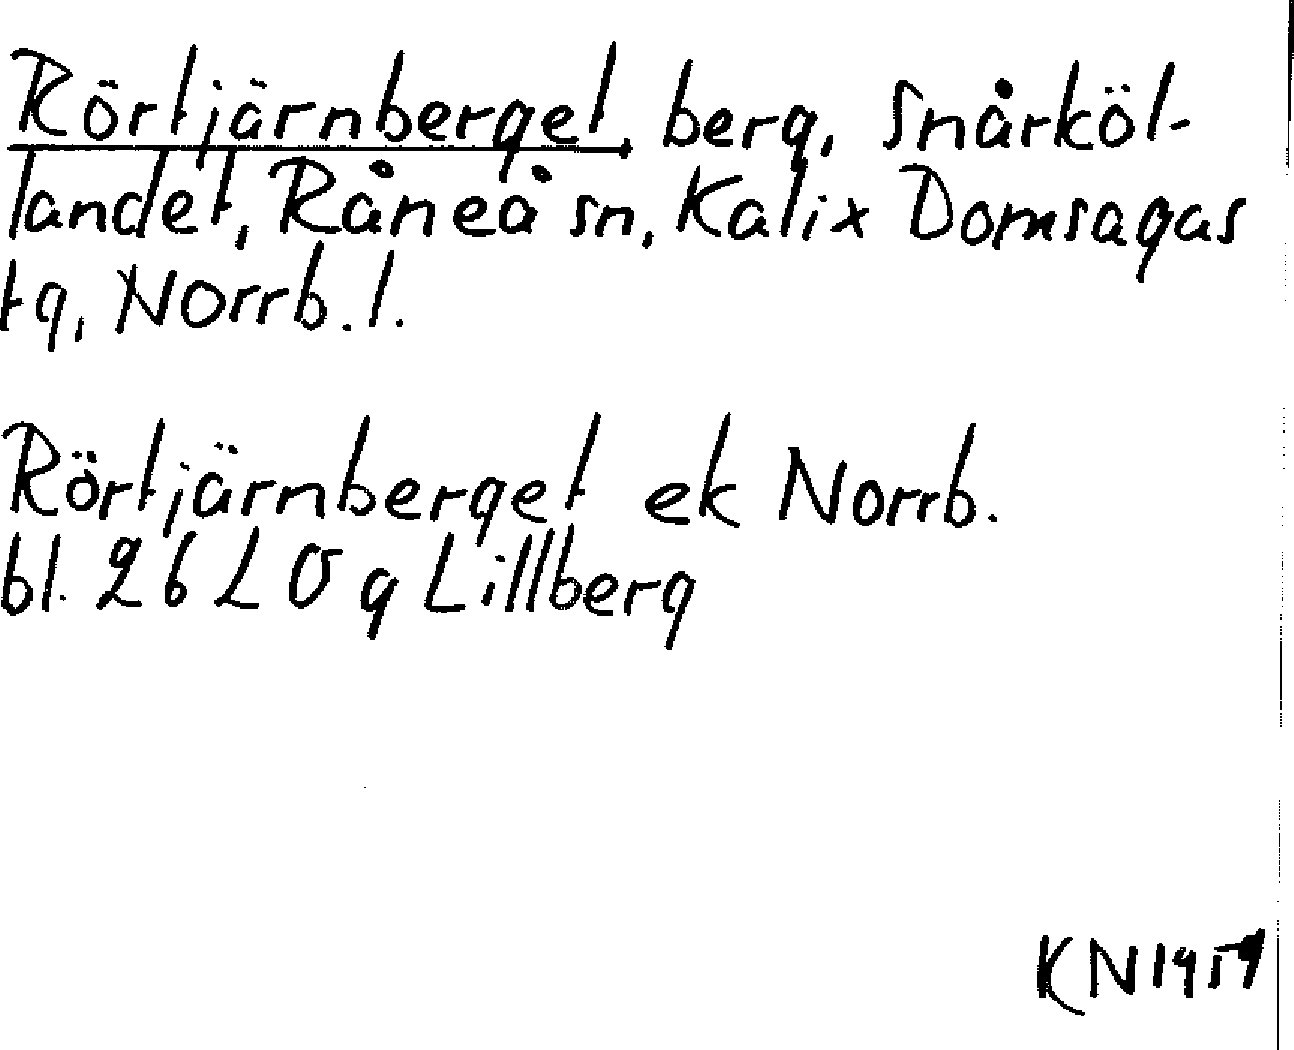 Rörtjärnberget, berg, Snårköl-
landet, Råneå sn, Kalix Domsagas
tg, Norrb. l.
Rörtjärnberget ek Norrb.
bl. 26 L 0 g Lillberg
KN